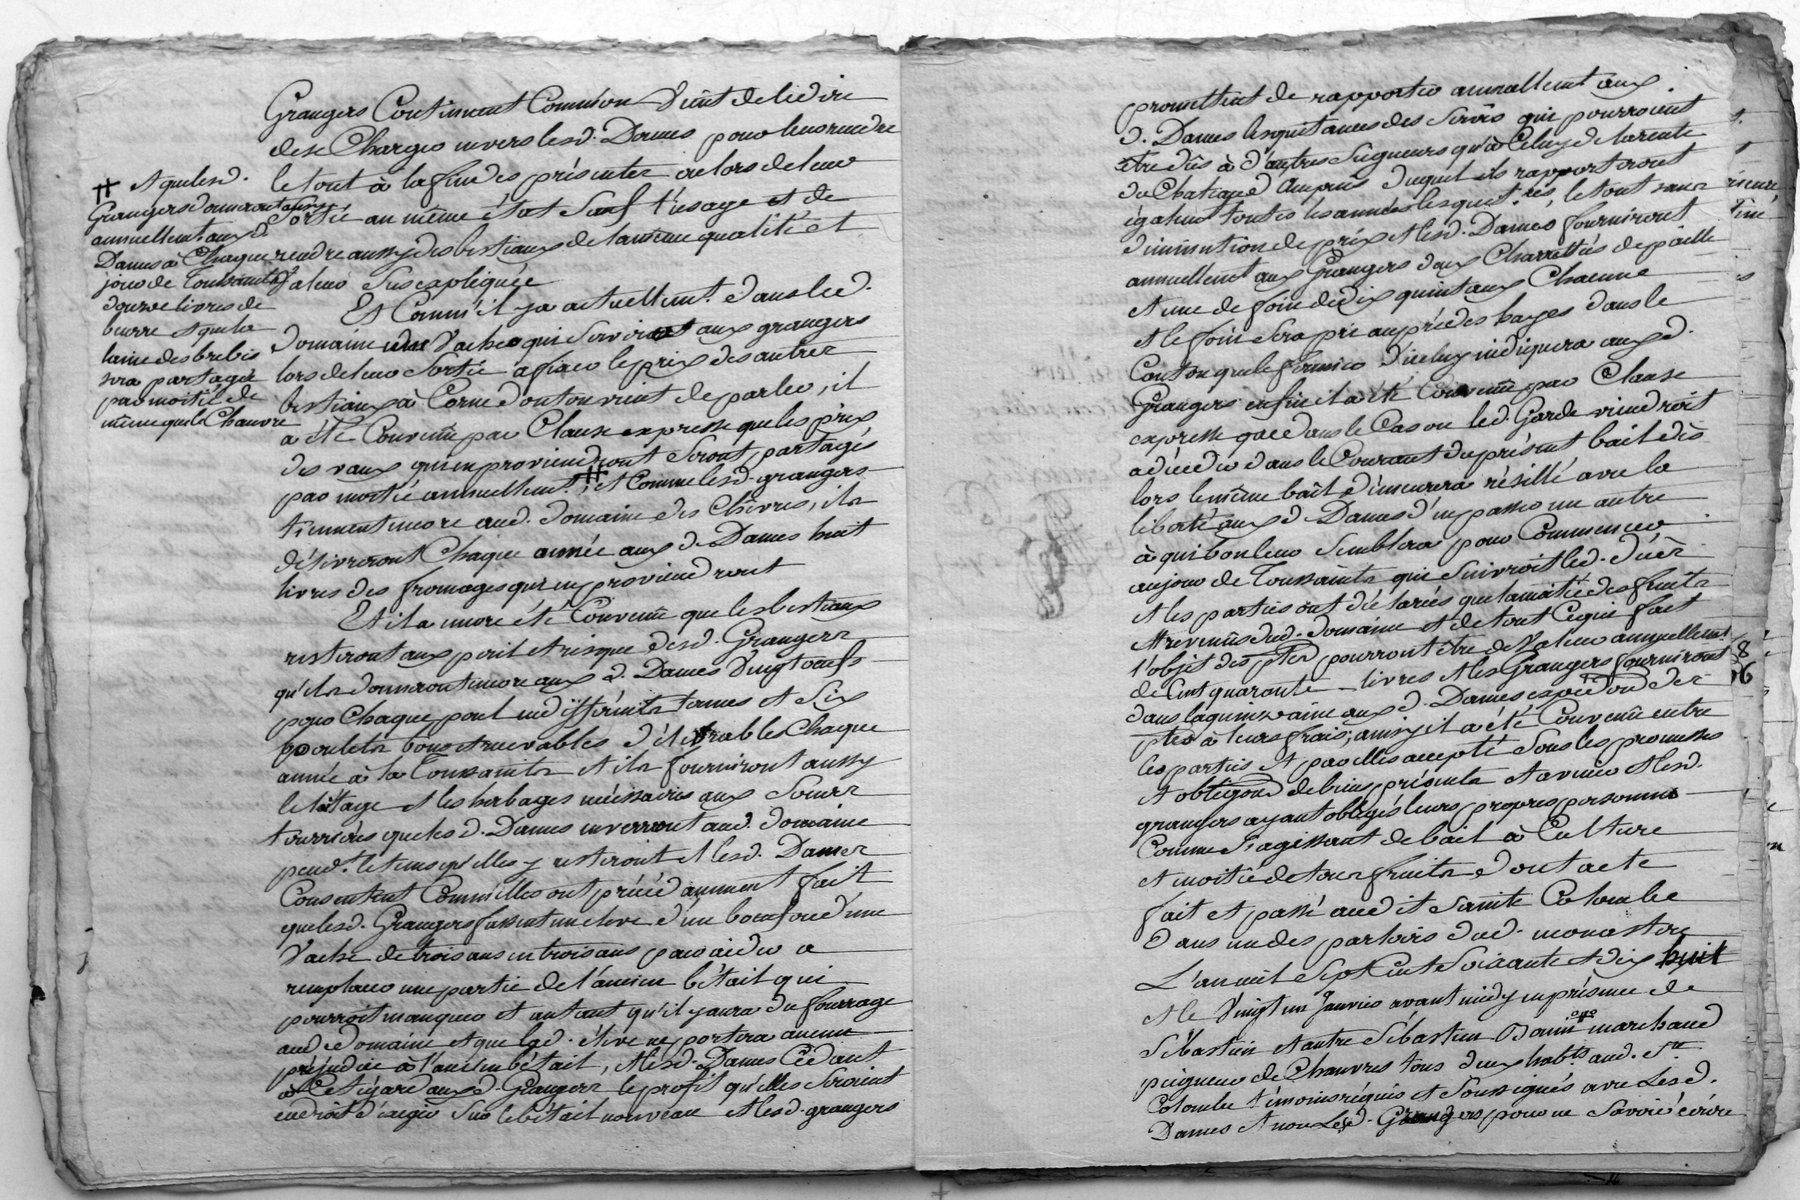 Grangers Contiment Comm'on Vient de le dire
de se Charger envers lesd. Dames pour leur rendre
le tout à la fin des présentes ou lors de leur
sortie au même état Sauf l'usage et de
rendre aussy des bestiaux de la même qualité et
Valeur Susexpliquée
Et Comm'il ya actuellemt. dans led.
domaine une Vache qui Servira aux grangers
lors de leur Sortie a fixer le prix des autres
bestiaux à Corne dont on vient de parler, il
a été Convenû par Clause expresse que les prix
des vaux qui en proviendront Seront partagés
par moitié annuellemt. ǂ, et Comme lesd. grangers
tiennent encore aud. domaine des Chèvres, ils
délivreront Chaque année auxd. Dames huit
livres des fromages qui en proviendront
Et il a encore été Convenû que les bestiaux
resteront aux peril et risque desd. Grangers
qu'ils donneront encore aux d. Dames Vingt oeufs
pour Chaque poul en differents termes et Six
poulets bons et recevables délivrables Chaque
année à la Toussaints et ils fourniront aussy
le laitage et les herbages nécessaires aux Soeurs
tourrieres que les d. Dames enverront aud. domaine
pendt. le tems qu'elles y resteront et lesd. Dames
Consentent Comm'elles ont précédamment fait
que lesd. Grangers fassent un eleve d'un boeuf ou d'une
Vache de trois ans en trois ans pour aider a
remplacer une partie de l'ancien bétail qui
pourroit manquer et autant qu'il y aura du fourrage
aud domaine et que led. élève ne portera aucun
préjudice à l'ancien bétail, et lesd. Dames Cédant
à Cet égard aux d. Grangers le profit qu'elles Seroient
en droit d'exiger Sur le bétail nouveau et lesd. grangers
ǂ et que lesd.
Grangers donneront aussy
annuellemt. aux d.
Dames à Chaque
jour de Toussaints
douze livres de
beurre et que la
laine des brebis
sera partagée
par moitié de
même que le Chanvre
promettent de rapporter annuellemt aux
d. Dames les quitances des Servis qui pourroient
être dûs à d'autres Seigneurs qu'à Celuy de la rente
du Chatigné Auprès duquel ils rapporteront
egalemt toutes les années les quit.ces, le tout sans
diminution de prix et lesd. Dames fourniront
annuellemt aux Grangers deux Charrettées de paille
et une de foin de dix quintaux Chacune
et le foin Sera pris auprès des hayes dans le
Canton que le fermier d'iceluy indiquera aux d.
Grangers enfin il a été Convenû par Clause
expresse que dans le Cas ou led. Garde viendroit
a décéder dans le Courant du présent bail dès
lors le même bail demeurera résillé avec la
liberté aux d. Dames d'en passer un autre
à qui bon leur Semblera pour Commencer
au jour de Toussaints qui Suivroit led. décès
et les parties ont déclarées que la moitié des fruits
et revenûs dud. domaine et de tout Ce qui fait
l'objet des ptes pourront être de Valeur annuellemt
de Cent quarante livres et les Grangers fourniront
dans la quinzaine aux d. Dames expédon des
ptes à leurs frais; ainsy il a été Convenû entre
les parties et par elles accepté Sous les promesses
et obligaon de biens présents et avenirs et lesd.
grangers ayant obligés leurs propres personnes
Comme S'agissant de bail à Culture
et moitié de tous fruits dont acte
fait et passé audit Sainte Colombe
dans un des parloirs dud. monastere
L'an mil Sept Cent Soixante et dix huit
et le Vingt un Janvier avant midy en présence de
Sébastien et autre Sébastien marchand
peigneur de Chanvres tous deux habts aud. Ste
Colombe témoins réquis et Soussignés avec Lesd.
Dames et non Lesd. Grangers pour ne Savoir écrire